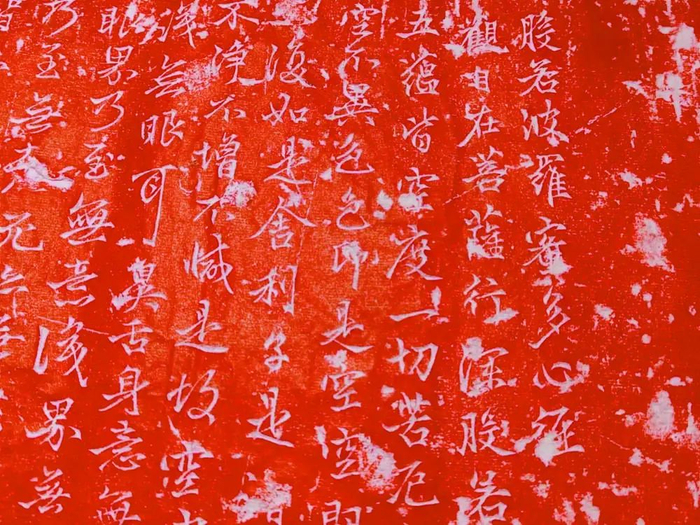 般若波羅蜜多心經
觀自在菩薩行深般若
五蘊皆空度一切苦厄
空不異色色即是空空即
復如是舍利子是諸
不淨不增不減是故空中
識無眼耳鼻舌身意無
眼界乃至無意識界無
乃至無老